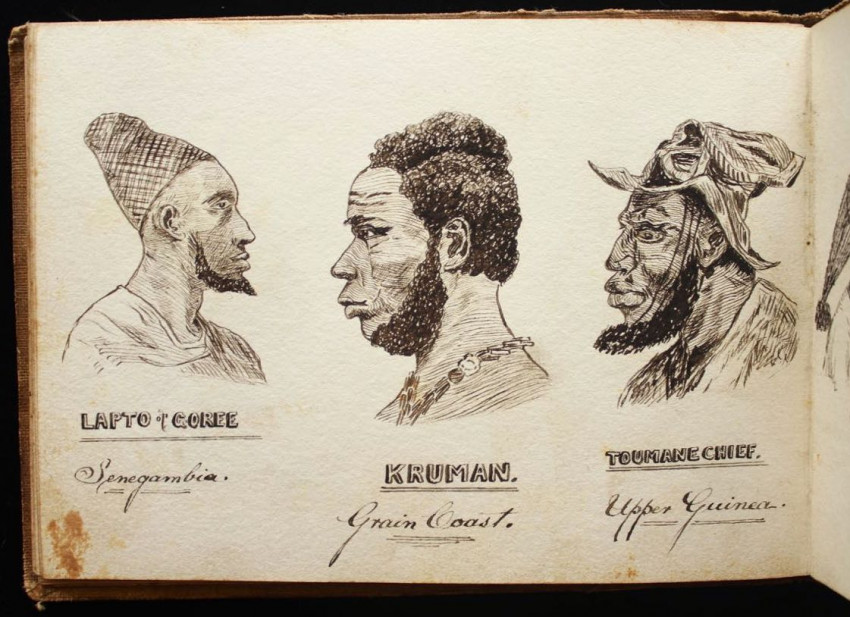 LAPTO of GOREE
Senegambia.
KRUMAN.
Grain Coast.
TOUMANE CHIEF.
Upper Guinea.